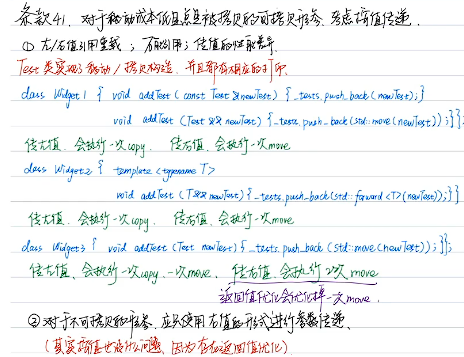 条款41、对于移动成本低且总是被拷贝的可拷贝形参,考虑按值传递.
① 左/右值引用重载;万能引用;传值的性能差异.
Test类实现了移动/拷贝构造,并且都有相应的打印.
class Widget1 { void addTest (const Test &newTest) {_tests.push_back(newTest);}
void addTest (Test && newTest) {_tests.push_back(std::move(newTest));}};
传左值,会执行一次copy, 传右值,会执行一次move
class Widget2 { template <typename T>
void addTest (T&& newTest){_tests.push_back(std::forward<T>(newTest));}}
传左值,会执行一次copy, 传右值,会执行一次move
class Widget3 { void addTest (Test newTest){_tests.push_back(std::move(newTest));}};
传左值、会执行一次copy,一次move、传右值,会执行2次move
返回值优化会优化掉一次move.
② 对于不可拷贝的形参,应只使用右值的形式进行参数传递、
(其实按值也没什么问题,因为存在返回值优化)